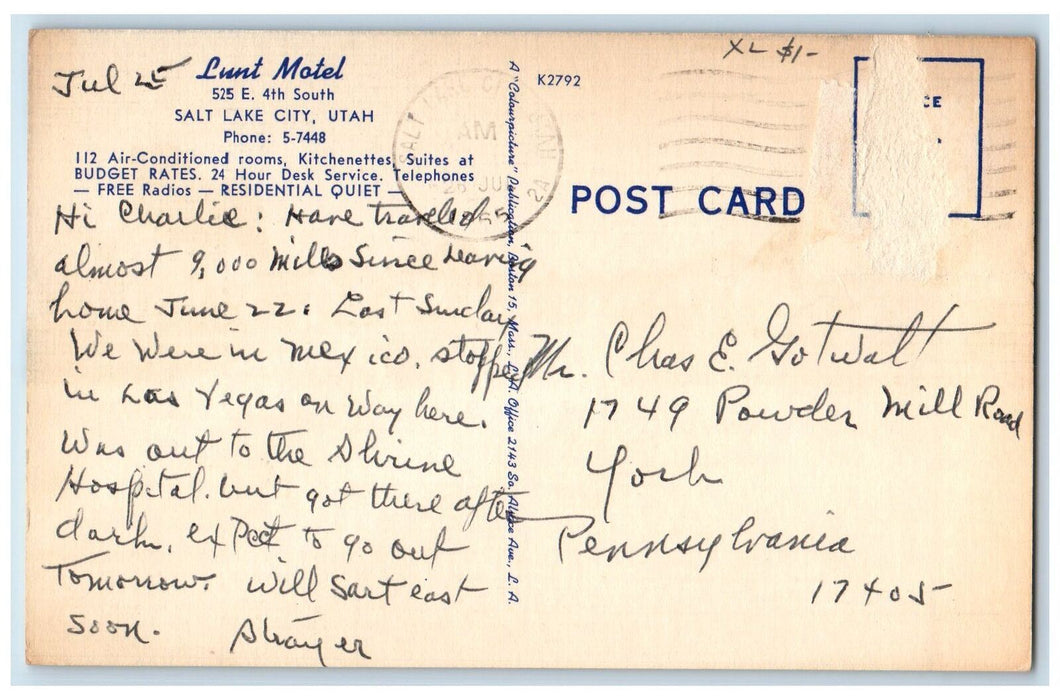 Jul 25
Lunt Motel
525 E. 4th South
SALT LAKE CITY, UTAH
Phone: 5-7448
112 Air-Conditioned rooms, Kitchenettes, Suites at
BUDGET RATES. 24 Hour Desk Service. Telephones
— FREE Radios — RESIDENTIAL QUIET —
Hi Charlie: Have traveled
almost 9,000 mills Since Leaving
home June 22. Last Sunday
We Were in Mexico. stopped
in Las Vegas on Way here.
Was out to the Shrine
Hospital. but got there after
dark. expect to go out
Tomorrow. will sart east
soon. Strayer
A "Colourpicture" Publication, Boston 15, Mass., U.S.A. Office 2143 So. Ave., L. A.
K2792
SALT LAKE CITY UTAH
AM
26 JUL
XL $1-
POST CARD
Mr. Chas E. Gotwalt
1749 Powder Mill Road
York
Pennsylvania
17405